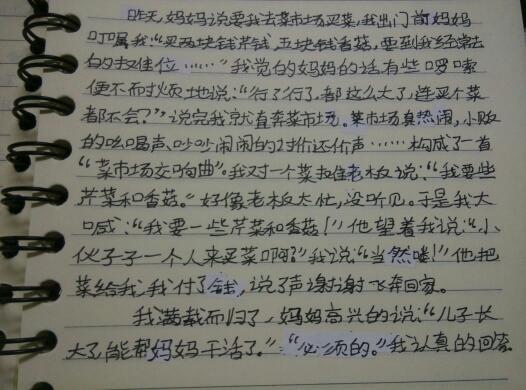 昨天,妈妈说要我去菜市场买菜,我出门前妈妈
叮嘱我:“买两块钱芹菜,五块钱香菇,要到我经常去
的摊位……”我觉的妈妈的话有些啰嗦
便不耐烦地说:“行了行了,都这么大了,连买个菜
都不会?”说完我就直奔菜市场。菜市场真热闹,小贩
的吆喝声、吵吵闹闹的讨价还价声……构成了一首
“菜市场交响曲”。我对一个菜摊老板说:“我要些
芹菜和香菇。”好像老板太忙,没听见。于是我大
喊:“我要一些芹菜和香菇!”他望着我说:“小
伙子子一个人来买菜啊?”我说:“当然喽!”他把
菜给我,我付了钱,说了声谢谢飞奔回家。
我满载而归了,妈妈高兴的说:“儿子长
大了,能帮妈妈干活了。”“必须的。”我认真的回答